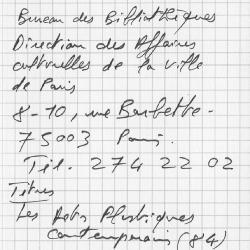 Bureau des Bibliothèques
Direction des Affaires
culturelles de la ville
de Paris
8-10, rue Barbette.
75003 Paris.
Tél. 274 22 02
Titres
Les Arts Plastiques
contemporains (84)